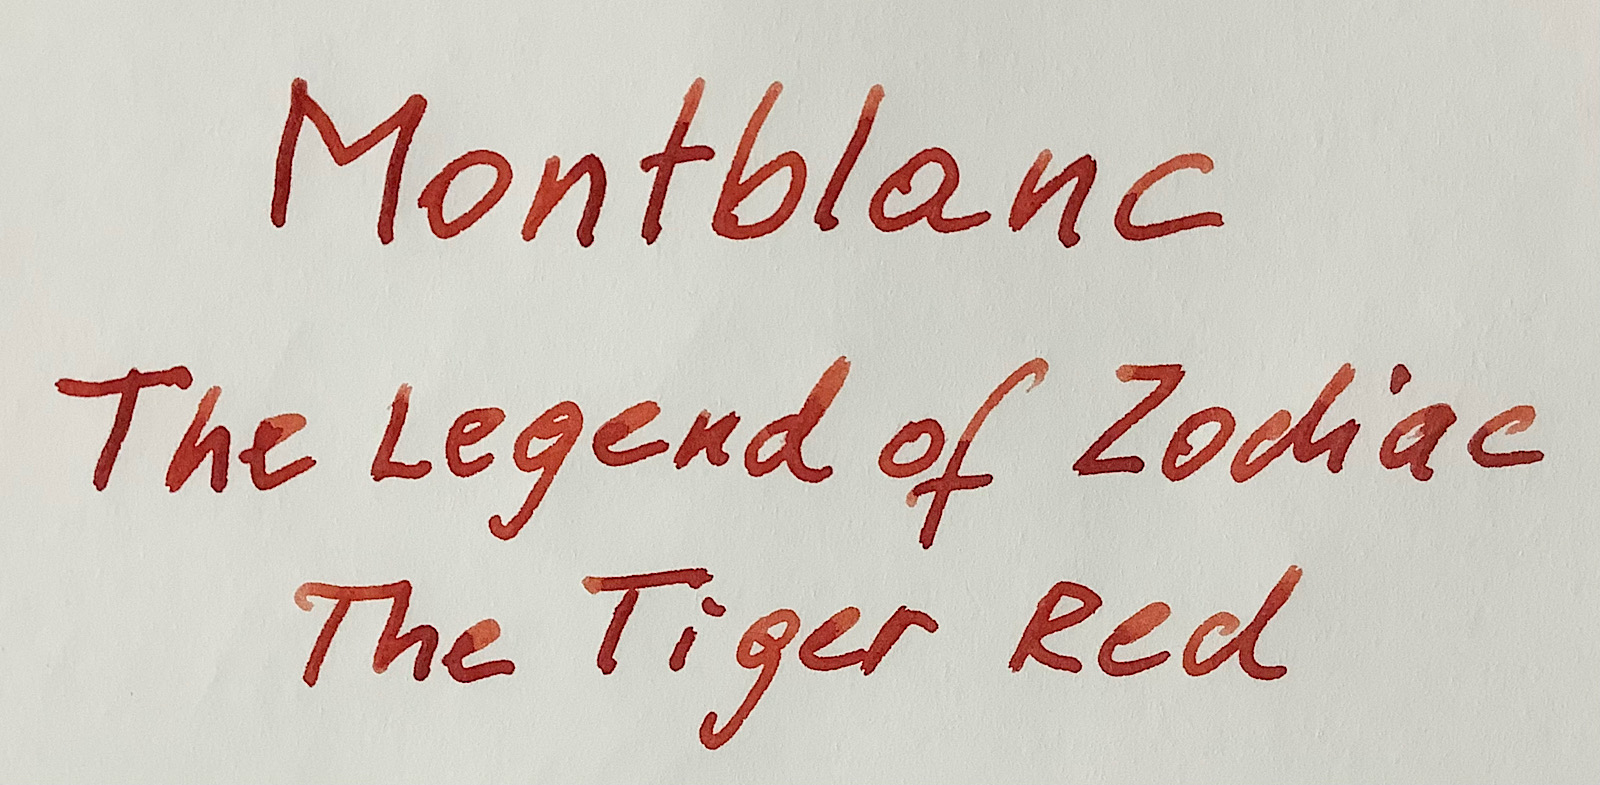 Montblanc
The Legend of Zodiac
The Tiger Red